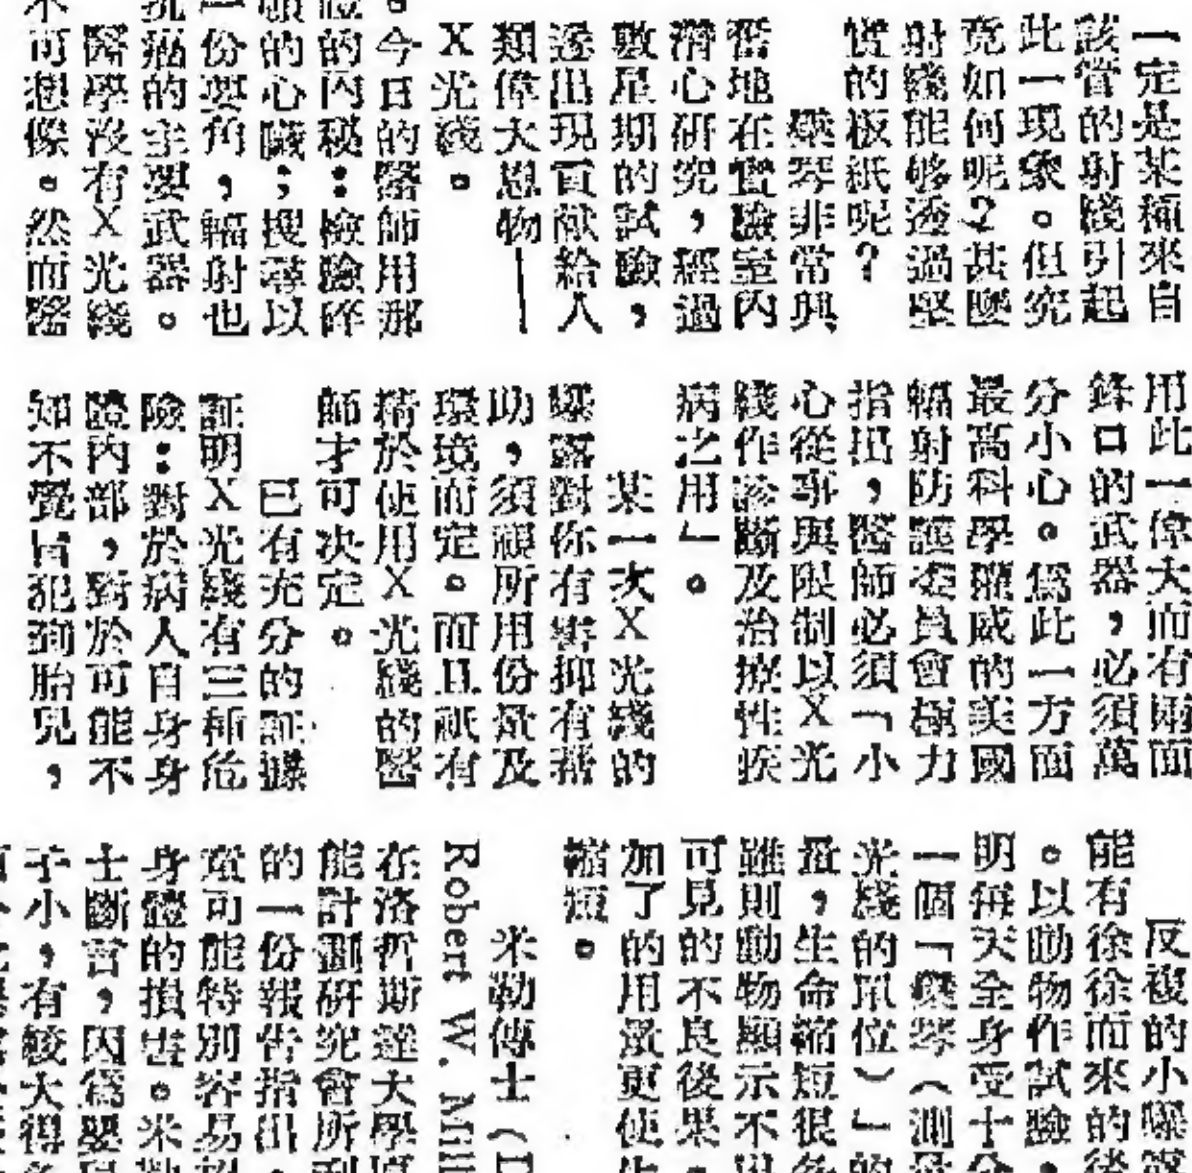 一定是某種來自
該管的射綫引起
此一現象。但究
竟如何呢？甚麼
射綫能够透過堅
實的板紙呢？
琴非常興
奮地在實驗室內
潛心研究，經過
數星期的試驗，
遂出現貢献給人
類偉大恩物—
X光綫。
。今日的醫師用那
的內秘：檢驗
的心臟；搜尋以
一份要角，輻射也
抗癌的主要武器。
醫學沒有X光綫
不可想像。然而醫
用此一偉大而有兩面
鋒口的武器，必須萬
分小心。爲此一方面
最高科學權威的美國
輻射防護委員會極力
指出，醫師必須「小
心從事與限制以X光
綫作診斷及治療性疾
病之用」。
某一次X光綫的
曝露對你有害抑有帮
助，須視所用份量及
環境而定。而且祇有
精於使用X光綫的醫
師才可决定。
已有充分的証據
証明X光綫有三種危
險：對於病人自身身
體內部，對於可能不
知不覺胎兒，
反複的小曝露
能有徐徐而來的後
。以動物作試驗，
明每天全身受十分
一個「琴（測量
光綫的單位）」的
量，生命縮短很多
雖則動物顯示不出
可見的不良後果。
加了的用量更使生
縮短。
米勒傳士（D
Robert W. Mill
在洛哲斯達大學原
能計劃研究會所刊
的一份報告指出，
童可能特別容易招
身體的損害。米勒
士斷言，因爲嬰兒
子小，有較大得多